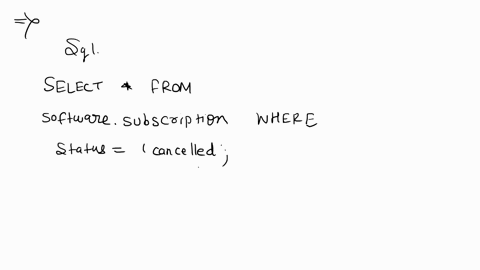 =>
Sql.
SELECT * FROM
software.subscription WHERE
Status = 'cancelled;